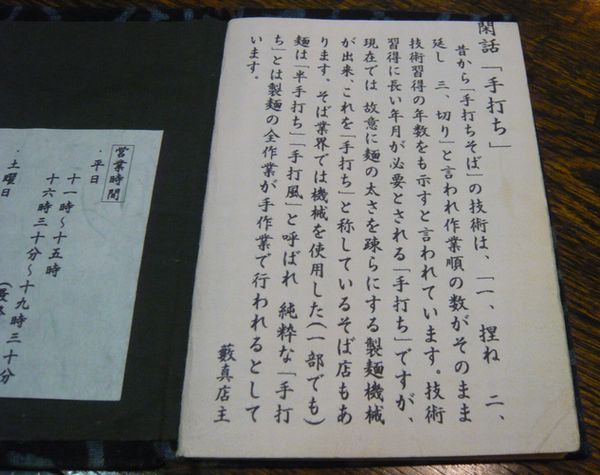 閑話「手打ち」
昔から「手打ちそば」の技術は、「一、捏ね 二、
延し 三、切り」と言われ作業順の数がそのまま
技術習得の年数をも示すと言われています。技術
習得に長い年月が必要とされる「手打ち」ですが、
現在では 故意に麺の太さを疎らにする製麺機械
が出来、これを「手打ち」と称しているそば店もあ
ります。そば業界では機械を使用した(一部でも)
麺は「半手打ち」「手打風」と呼ばれ 純粋な「手打
ち」とは製麺の全作業が手作業で行われるとして
います。
籔真店主
営業時間
・平日
十一時～十五時
十六時三十分～十九時三十分
・土曜日